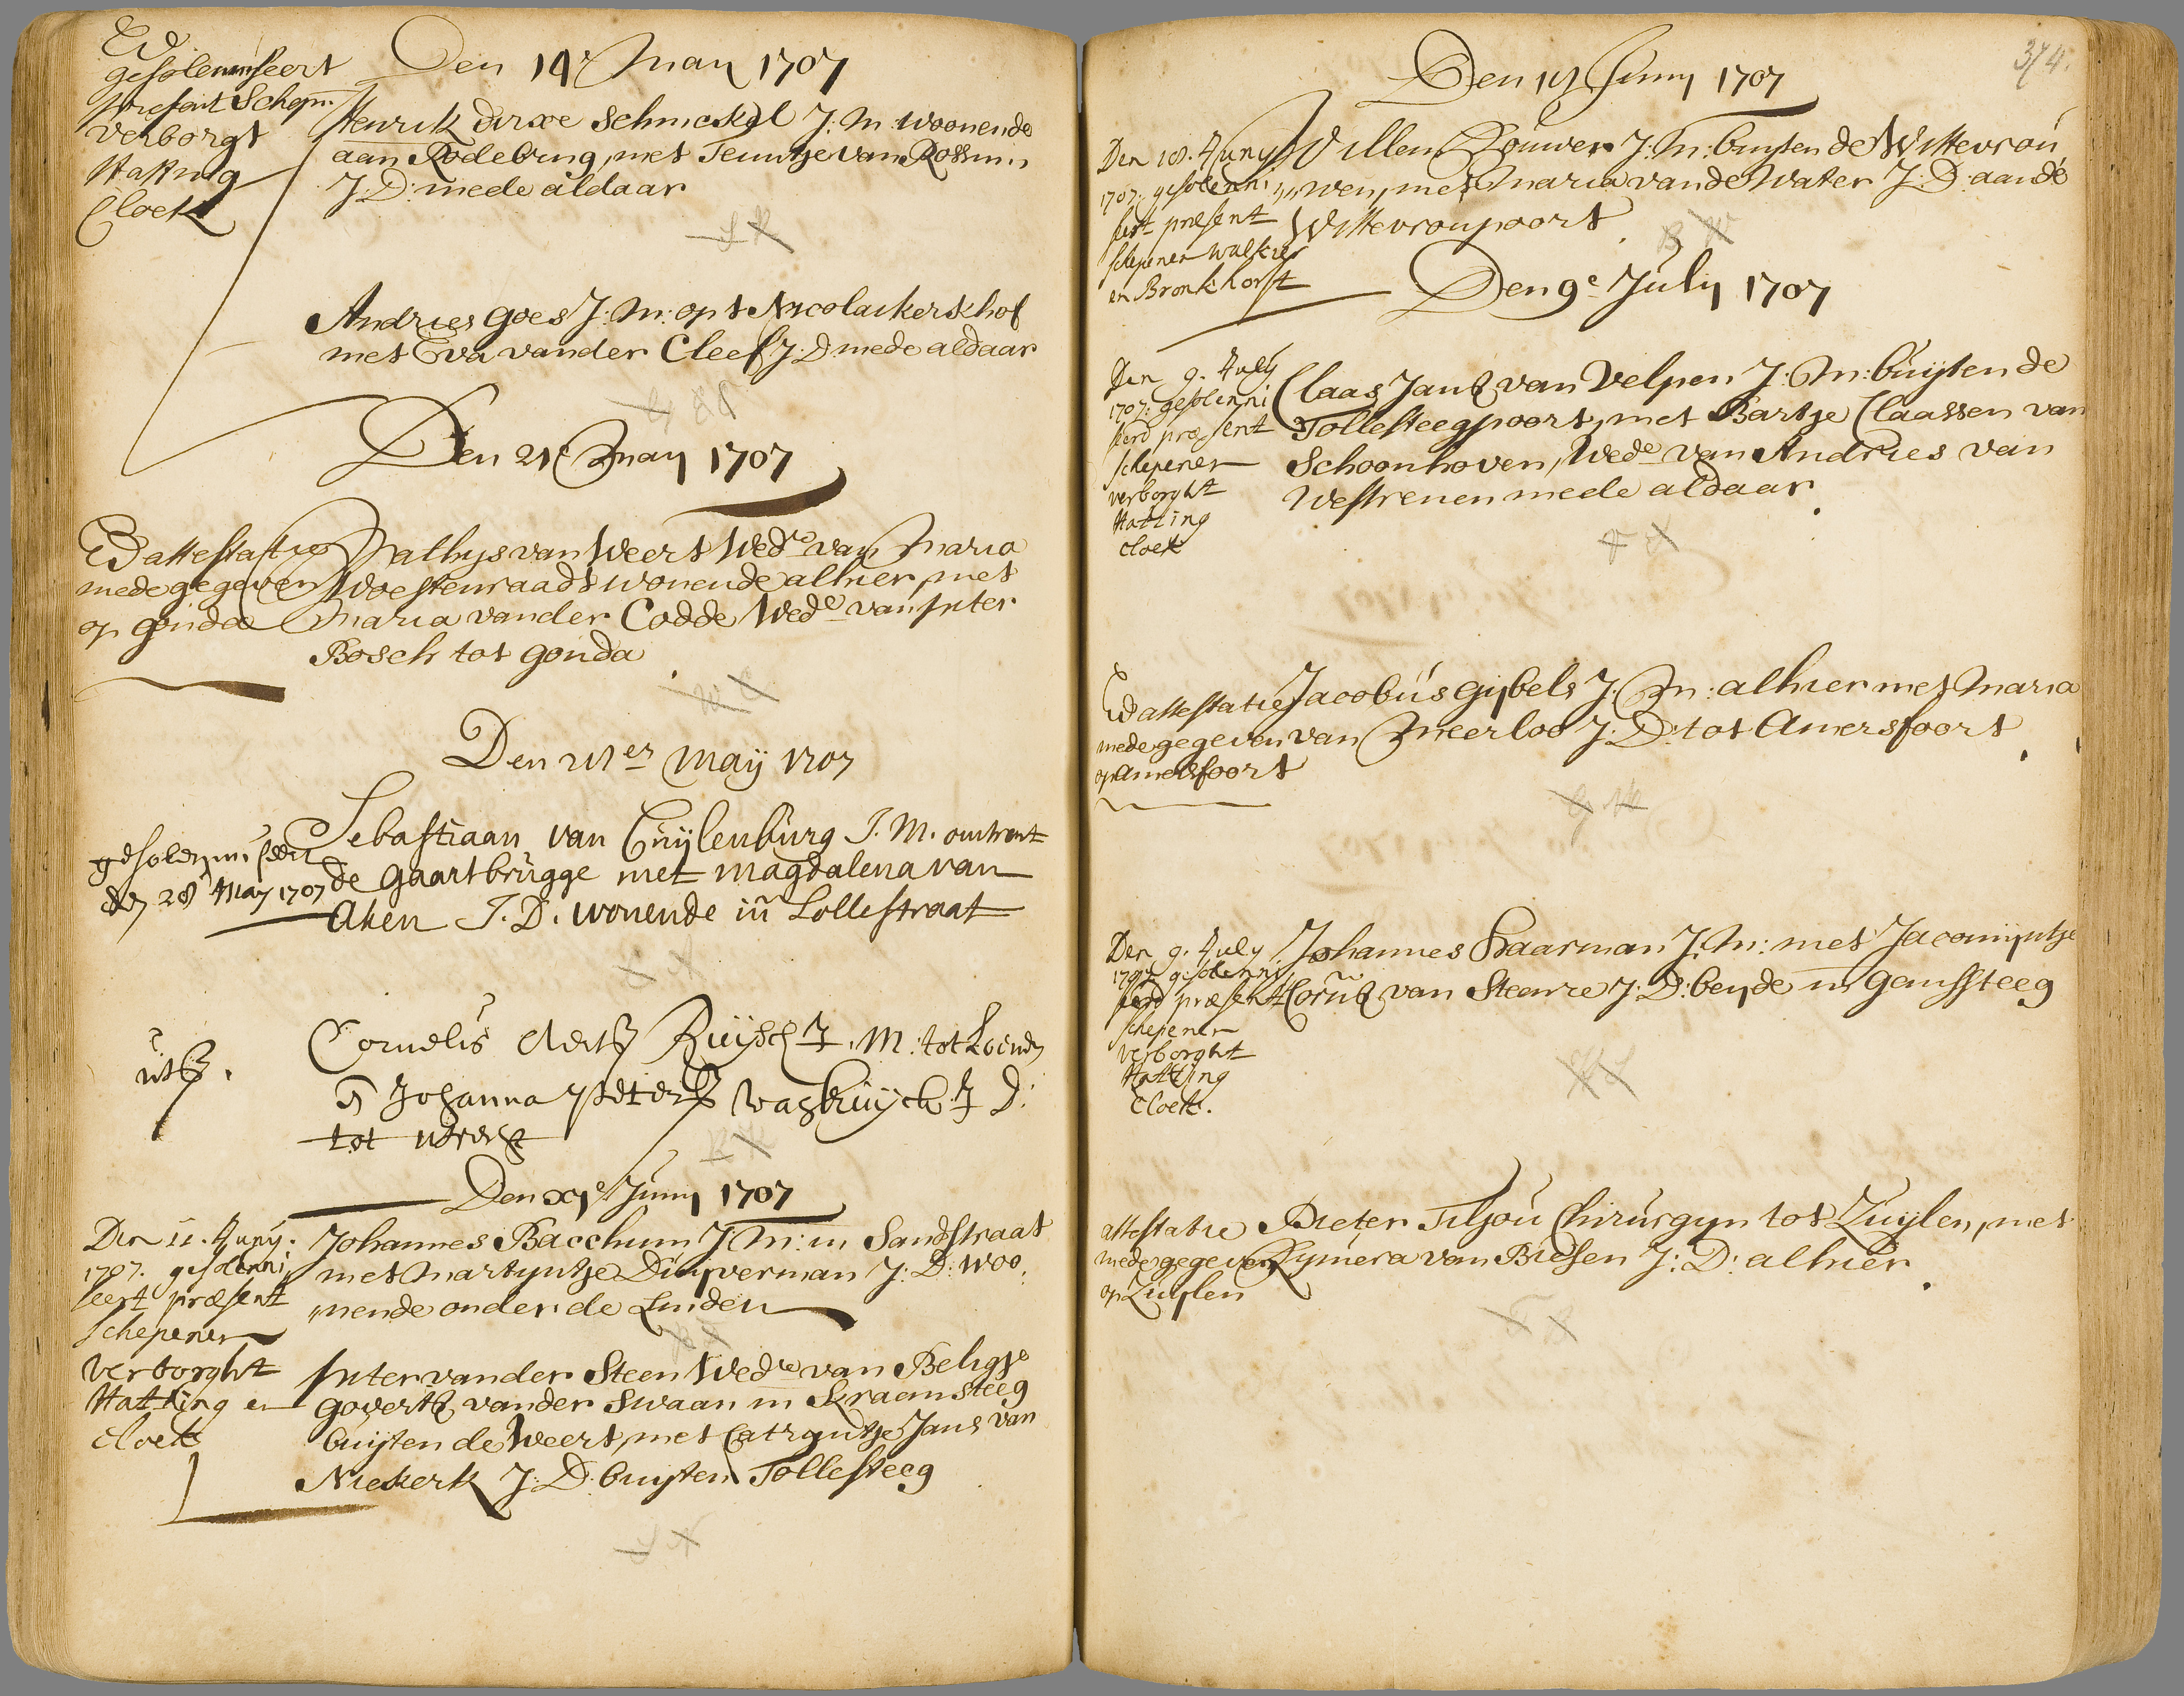 Ed
gesolemniseert
present Schepn.
Verborgt
Hatting
Cloek
Den 14e May 1707
Henrik dirxe Schmeskel J: M: woonende
aan Rodebrug, met Teuntje van Rossum
J: D: mede aldaar
Andries Goes J: M: op t Nicolaikerkhof
met Eva vander Cleef J: D mede aldaar
Den 21e May 1707
Ed attestatie
mede gegeven
op Gouda
Mathys van Weert Wedr van Maria
Woestenraadt wonende alhier, met
Maria vander Codde Wede van Piter
Bosch tot Gouda
Den 21er Maÿ 1707
gesolemniseert
den 28 May 1707
Sebastiaan van Cuÿlenburg J. M. omtrent
de Gaartbrugge met Magdalena van
Aken J. D. wonende in Lollestraat
uts.
Cornelis Aerts Ruÿsch J. M: tot Loenen
Johanna Peters J D:
tot utrecht
Den xje Juny 1707
Den 11. Juny.
1707. gesolenni
seert præsent
schepenen
verborght
Hatting en
Cloek
Johannes Bacchum J: M: in Sandstraat
met Martyntje Duyverman J: D: woo,
nende onder de Linden
Piter vander Steen Wedr van Beligje
Goverts vander Swaan in Kraemsteeg
buijten de Weert, met Catryntje Jans van
Niekerk J: D: buijten Tollesteeg
374.
Den 18 Juny 1707
Den 18. Juny
1707. gesolenni
sert present
schepenen Walkier
en Bronkhorst
Willem Bouwer J: M: buyten de Wittevrou
wen, met Maria vande Water J: D: aande
Wittevroupoort
Den 9e July 1707
Den 9. July
1707: gesolenni
seerd præsent
schepenen
verborght
Hatting
Cloek
Claas Jans van Velpen J: M: buijten de
Tollesteegpoort, met Bartje Claassen van
Schoonhoven, Wede van Andries van
Westrenen meede aldaar
Ed attestatie
mede gegeven
op amersfoort
Jacobus Gijbels J: M: alhier met Maria
van Meerloo J: D: tot Amersfoort
Den 9. July
1707. gesolenni
seerd præsent
schepenen
verborght
Hatting
Cloek.
Johannes Haarman J: M: met Jacomijntje
Corns van Steenre J: D: beyde in Ganssteeg
attestatie
mede gegeven
op Zuylen
Pieter Tiljou Chirurgyn tot Zuijlen, met
Rymera van Biesen J: D: alhier